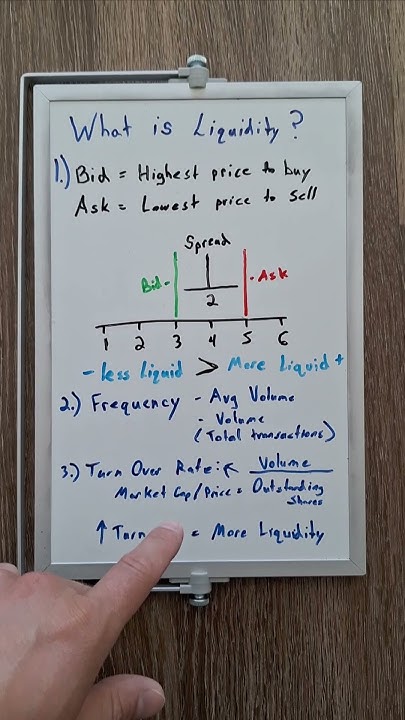 What is Liquidity?
1.) Bid = Highest price to buy
Ask = Lowest price to sell
Spread
Bid - 2 - Ask
1 2 3 4 5 6
- less Liquid > More Liquid +
2.) Frequency - Avg Volume
- Volume
(Total transactions)
3.) Turn Over Rate: Volume
Market Cap/Price = Outstanding
Shares
↑ Turn = More Liquidity